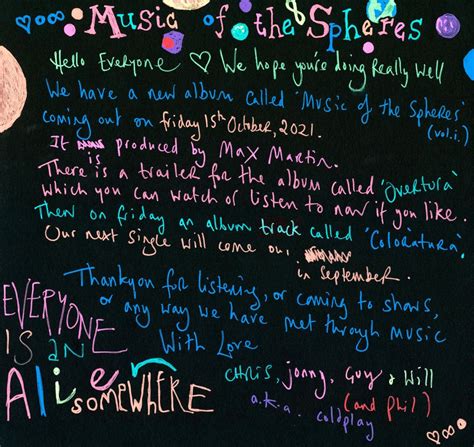 Music of the Spheres
Hello Everyone ♡ We hope you're doing Really Well
We have a new album called 'Music of the Spheres
(vol.i.)
coming out on friday 15th October, 2021.
It is produced by Max Martin.
There is a trailer for the album called 'Overtura'
which you can watch or listen to now if you like.
Then on friday an album track called 'Coloratura'.
Our next single will come out
in September.
Thankyou for listening, or coming to shows,
or any way we have met through music
With Love
EVERYONE
IS an
Alien
somewhere
chris, jonny, Guy & Will
(and phil)
a.k.a. coldplay